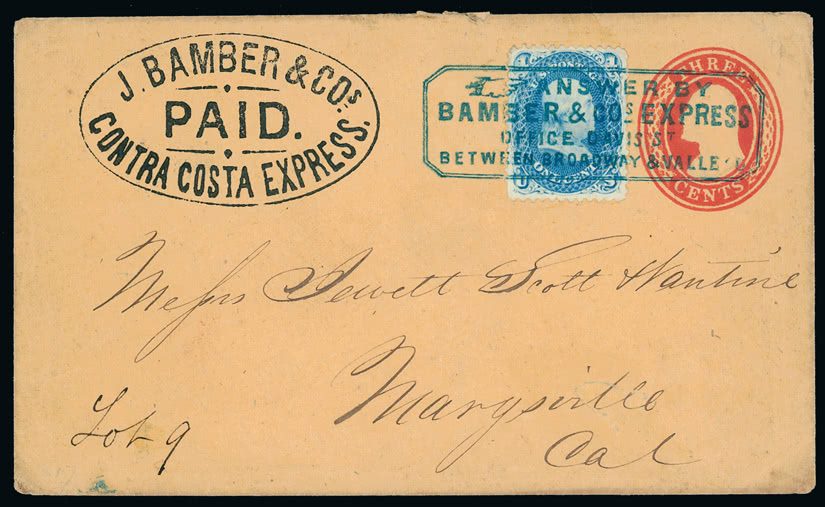 J. BAMBER & COS.
PAID.
CONTRA COSTA EXPRESS.
ANSWER BY
BAMBER & COS EXPRESS
OFFICE DAVIS ST
BETWEEN BROADWAY & VALLEJO
ONE CENT
THREE
CENTS
Messrs Jewett Scott
Marysville
Cal
Lot 9